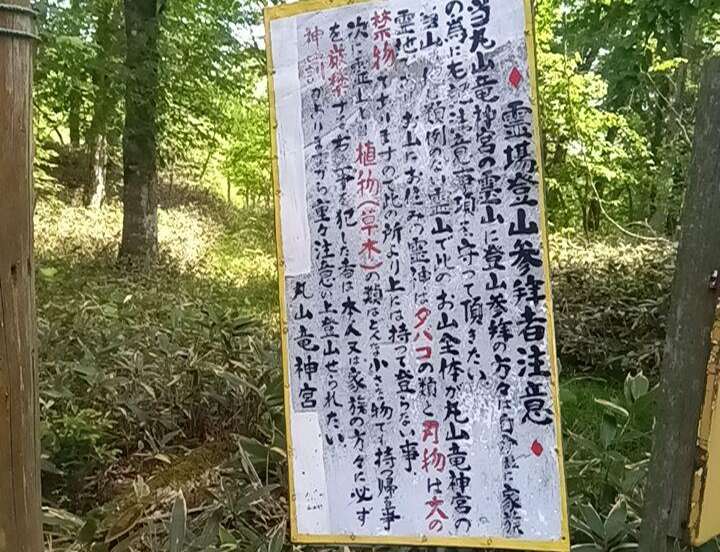 ♦霊場登山参拝者注意♦
当丸山竜神宮の霊山に登山参拝の方々は
の為にも記注意事項を守って頂きたい
当山は 類例ない霊山で此のお山全体が丸山竜神宮の
霊地 お山にお住みの霊神はタバコの類と刃物は大の
禁物 てありますので此の所より上には持って登らない事
次に霊山 植物(草木)の類はどんな小さな物でも持帰る事
を厳禁する右 事を犯した者は本人又は家族の方々に必ず
神罰があります から重々注意の上登山せられたい
丸山竜神宮